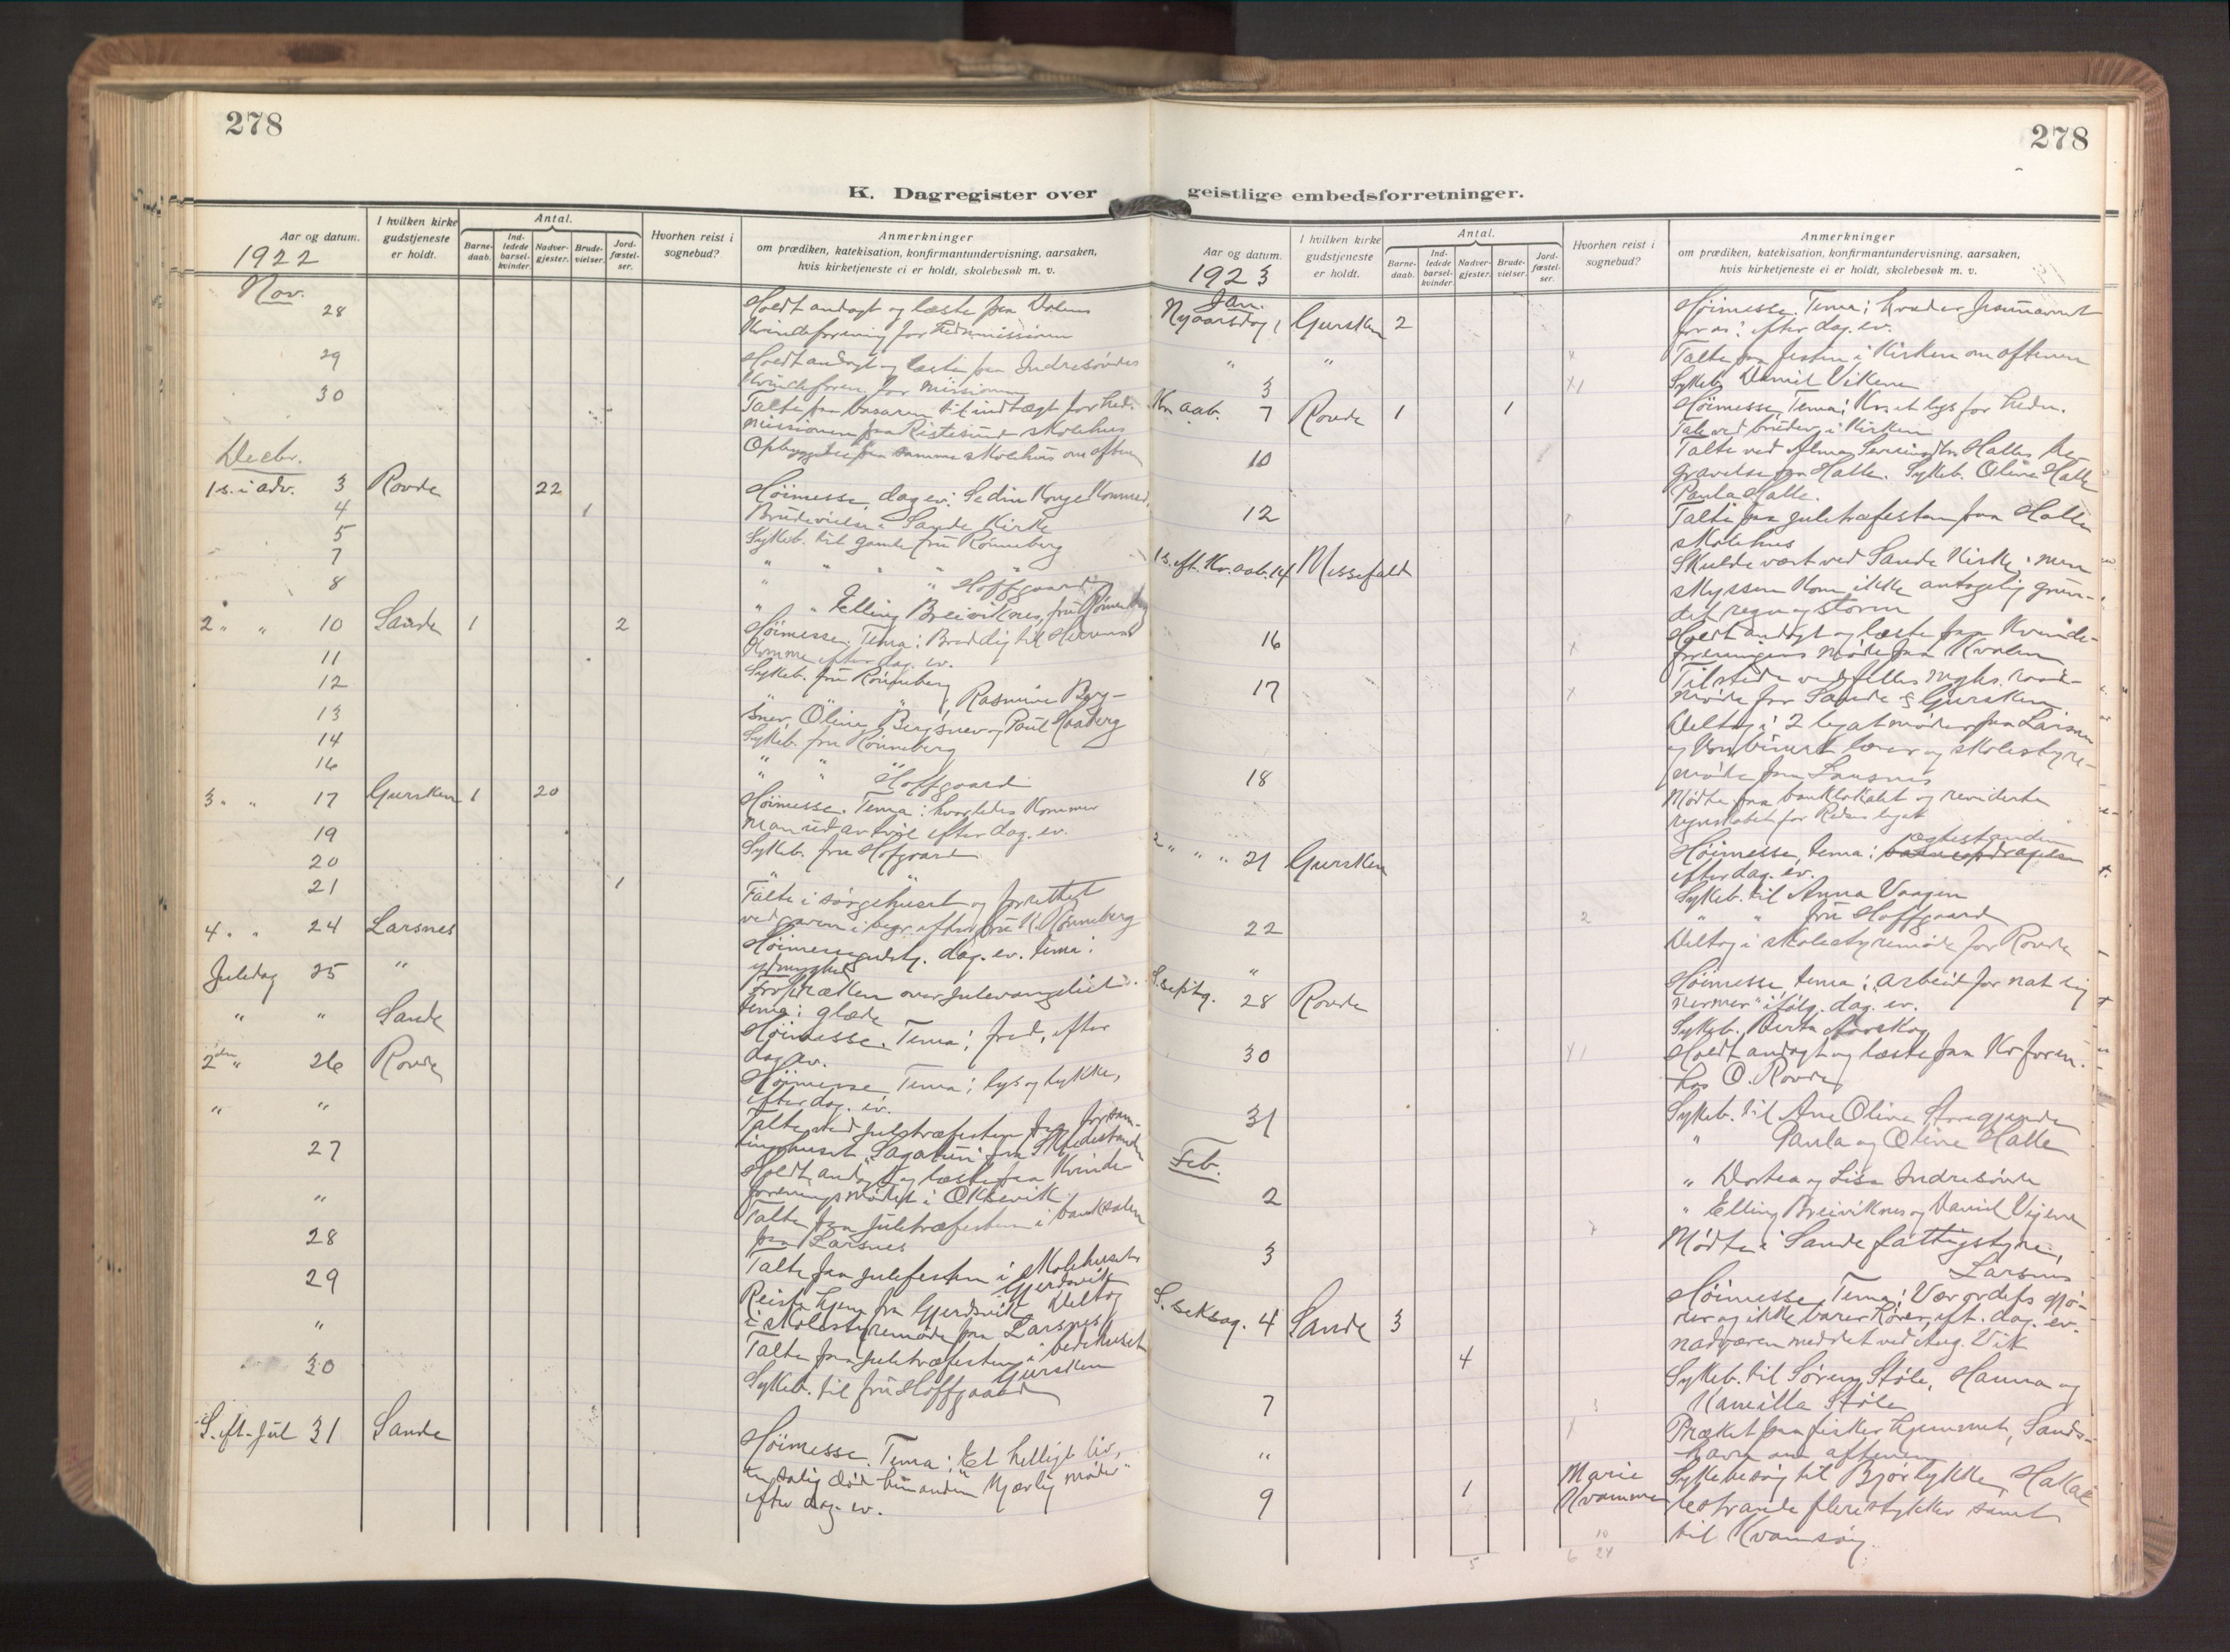 278
278
K. Dagregister over geistlige embedsforretninger.
Aar og datum.
I hvilken kirke gudstjeneste er holdt.
Antal.
Barne-daab.
Ind-ledede barsel-kvinder.
Nadver-gjester.
Brude-vielser.
Jord-fæstel-ser.
Hvorhen reist i sognebud?
Anmerkninger
om prædiken, katekisation, konfirmantundervisning, aarsaken,
hvis kirketjeneste ei er holdt, skolebesøk m. v.
1922
Nov.
28 Holdt andagt og læste paa
Kvindeforening for hedmissionen
29 Holdt andagt og læste paa Indresøvdes
Kvindeforen. for missionen
30 Talte paa basaren til indtægt for hed.
missionen paa Ristesund skolehus
Opbyggelse paa samme skolehus om aftenen
Decbr.
1 s. i adv. 3 Rovde 22 Høimesse, dag. ev: Se din Konge kommer
4 1 Brudevielse i Sande Kirke
5 Sykeb. til gamle fru Rønneberg
7 " " " " Hoffgaard
8 " " Elling Breiviknes, fru Rønneberg
2 " " 10 Sande 1 2 Høimesse. Tema: Bred dig til Herrens
Komme efter dag. ev.
11 Sykeb. fru Rønneberg
12 " " " , Rasmine Berg-
snev, Oline Bergsnev og Poul Haaberg
13 Sykeb. fru Rønneberg
14 " " "
16 Hoffgaard
3. " 17 Gursken 1 20 Høimesse. Tema: hvorledes kommer
man ud av tvil efter dag. ev.
19 Sykeb. fru Hofgaard
20 " "
21 1 Talte i sørgehuset og forrettet
ved graven i begr. efter fru K. Rønneberg
4. " 24 Larsnes Høimessegudstj. dag. ev. tema:
ydmyghed
Juledag 25 " Froprækten over juleevangeliet.
tema: glæde
" " Sande Høimesse. Tema: fred, efter
dag. ev.
2den " 26 Rovde Høimesse Tema: lys og lykke,
efter dag. ev.
" " Talte ved juletræfesten paa forsam-
lingshuset "Sagatun" paa
27 Holdt andagt og læste paa Kvinde-
foreningsmødet i Oksevik
" Talte paa juletræfesten i banksalen
paa Larsnes
28 Talte paa julefesten i skolehuset
Gjerdsvik
29 Reiste hjem fra Gjerdsvik. Deltog
i skolestyremøde paa Larsnes
" Talte paa juletræfesten i bedehuset
Gursken
30 Sykeb. til fru Hoffgaard
S. eft. jul 31 Sande Høimesse. Tema: Et helligt liv,
en salig død efter dag. ev.
Aar og datum.
I hvilken kirke gudstjeneste er holdt.
Antal.
Barne-daab.
Ind-ledede barsel-kvinder.
Nadver-gjester.
Brude-vielser.
Jord-fæstel-ser.
Hvorhen reist i sognebud?
Anmerkninger
om prædiken, katekisation, konfirmantundervisning, aarsaken,
hvis kirketjeneste ei er holdt, skolebesøk m. v.
1923
Jan.
Nyaarsdag 1 Gursken 2 Høimesse. Tema: hvad er Jesunavnet
for os? efter dag. ev.
" " Talte paa festen i Kirken om aftenen
3 Sykeb. Daniel Vikene
Kr. aab. 7 Rovde 1 1 Høimesse, Tema: Kr. et lys for hedn.
Tale ved brudev. i Kirken
10 Talte ved Halles be-
gravelse paa Halle. Sykeb. Oline Halle
Paula Halle.
12 Talte paa juletræfesten paa Halle
skolehus
1 s. eft. Kr. aab. 14 Messefald Skulde vært ved Sande Kirke, men
skyssen kom ikke antagelig grun-
det regn og storm
16 Holdt andagt og læste paa Kvinde-
foreningens møde paa Kvalen
17 Tilstede ved fælles mghs. raad-
møde for Sande & Gursken
Deltog i 2 legatmøder paa Larsnes
og kombinert lærer og skolestyre-
møde paa Larsnes
18 Mødte paa banklokalet og reviderte
regnskabet for legat
2 " " " 21 Gursken Høimesse, tema: egtestanden
efter dag. ev.
Sykeb. til Anna Vaagen
22 2 " " fru Hoffgaard
" Deltog i skolestyremøde for Rovde
S. septg. 28 Rovde Høimesse, tema: arbeid for nat sig
nermer "ifølg. dag. ev.
Sykeb. Berta Aarskog
30 Holdt andagt og læste paa Kv. foren.
hos O. Rovde
31 Sykeb. til Ane Oline
" Paula og Oline Halle
Feb.
" Dortea og Lisa Indresøvde
2 " Elling Breiviknes og Daniel Vigene
3 Mødte i Sande fattigstyre,
Larsnes
S. seksag. 4 Sande 3 Høimesse Tema: Vær ordets gjø-
rer og ikke barer hører, eft. dag. ev.
4 nadværen meddelt ved Aug. Vik
7 3 Sykeb. til Søren Støle, Hanna og
Kamilla Støle
" 1 Præket paa fiskerhjemmet, Sands-
havn om aftenen
9 1 Marie Kvamme Sykebesøg til Bjørlykke, Hakal-
lestrande flere stykker samt
til Kvamsøy
5 6 10 24